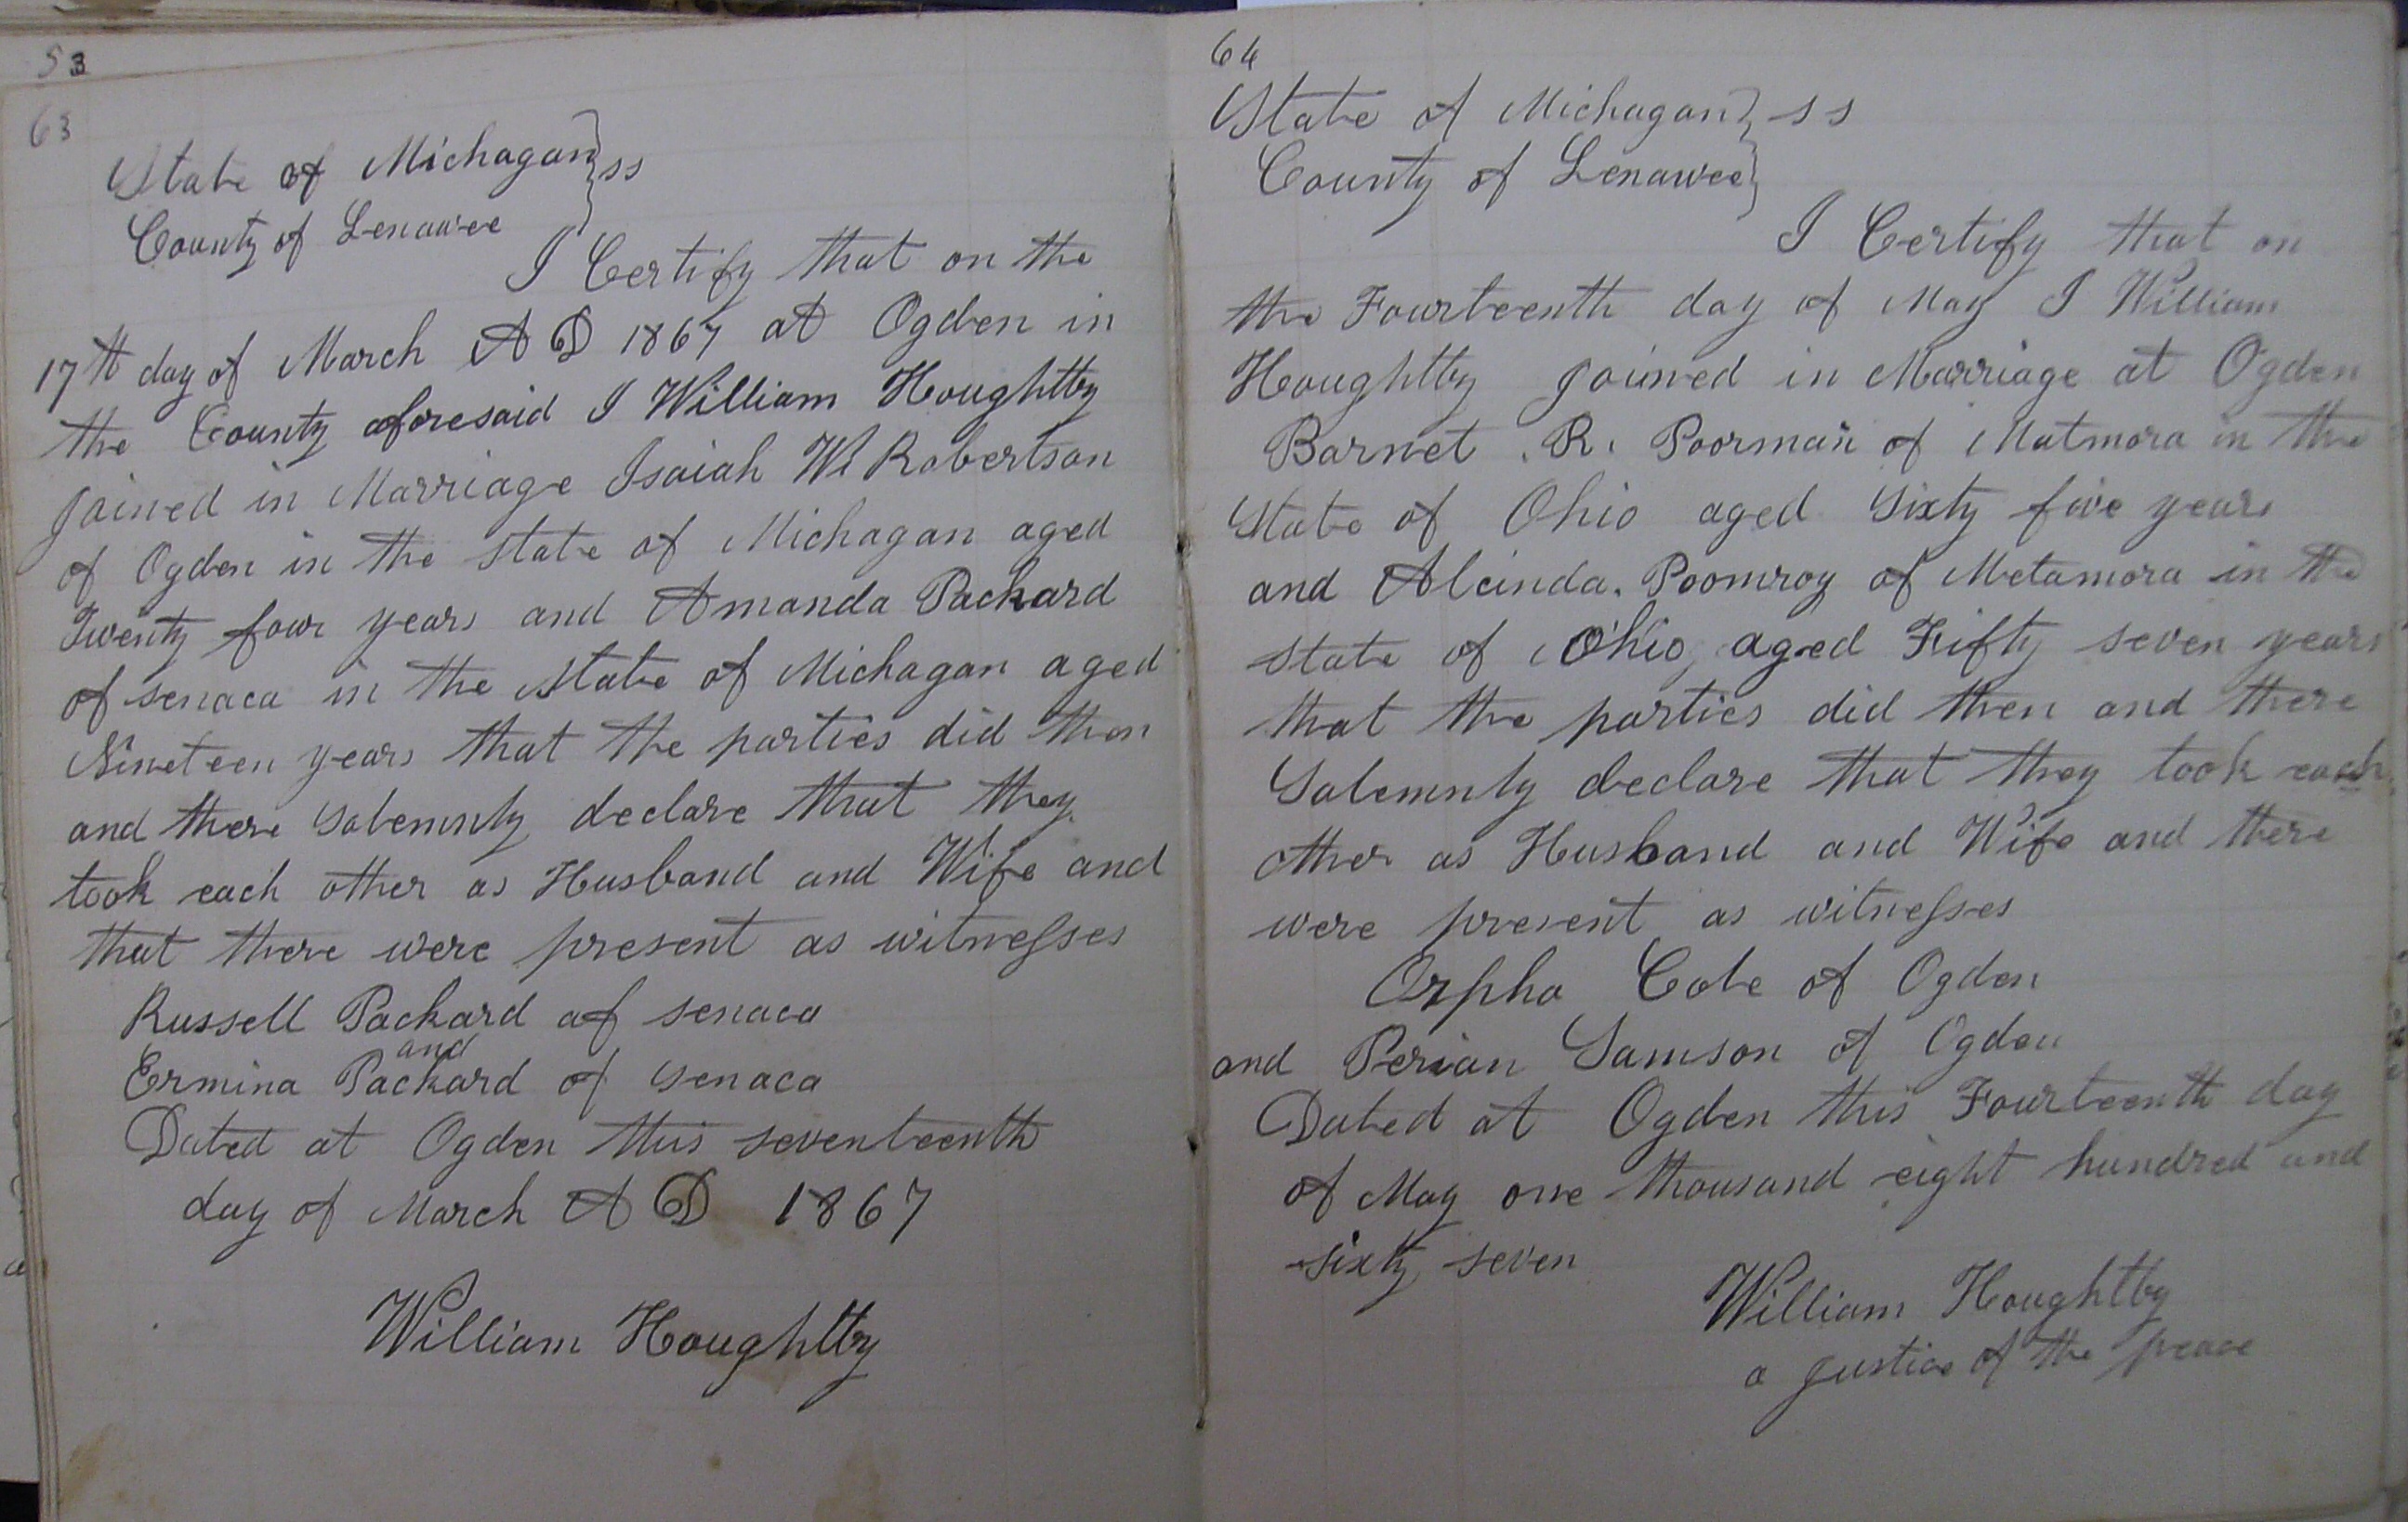 53
63
State of Michagan } ss
County of Lenawee
I Certify that on the
17th day of March A D 1867 at Ogden in
the County aforesaid I William Houghtby
joined in Marriage Isaiah W Robertson
of Ogden in the state of Michagan aged
Twenty four years and Amanda Packard
of senaca in the state of Michagan aged
Nineteen years that the parties did then
and there Solemnly declare that they
took each other as Husband and Wife and
that there were present as witnesses
Russell Packard of senaca
and
Ermina Packard of senaca
Dated at Ogden this seventeenth
day of March A D 1867
William Houghtby
64
State of Michagan } ss
County of Lenawee
I Certify that on
the Fourteenth day of May I William
Houghtby joined in Marriage at Ogden
Barnet . R. Poorman of Matmora in the
State of Ohio aged Sixty five years
and Alcinda. Poomroy of Metamora in the
state of Ohio, aged Fifty seven years
that the parties did then and there
Solemnly declare that they took each
other as Husband and Wife and there
were present as witnesses
Orpha Cole of Ogden
and Perian Samson of Ogden
Dated at Ogden this Fourteenth day
of May one thousand eight hundred and
sixty seven
William Houghtby
a justice of the peace